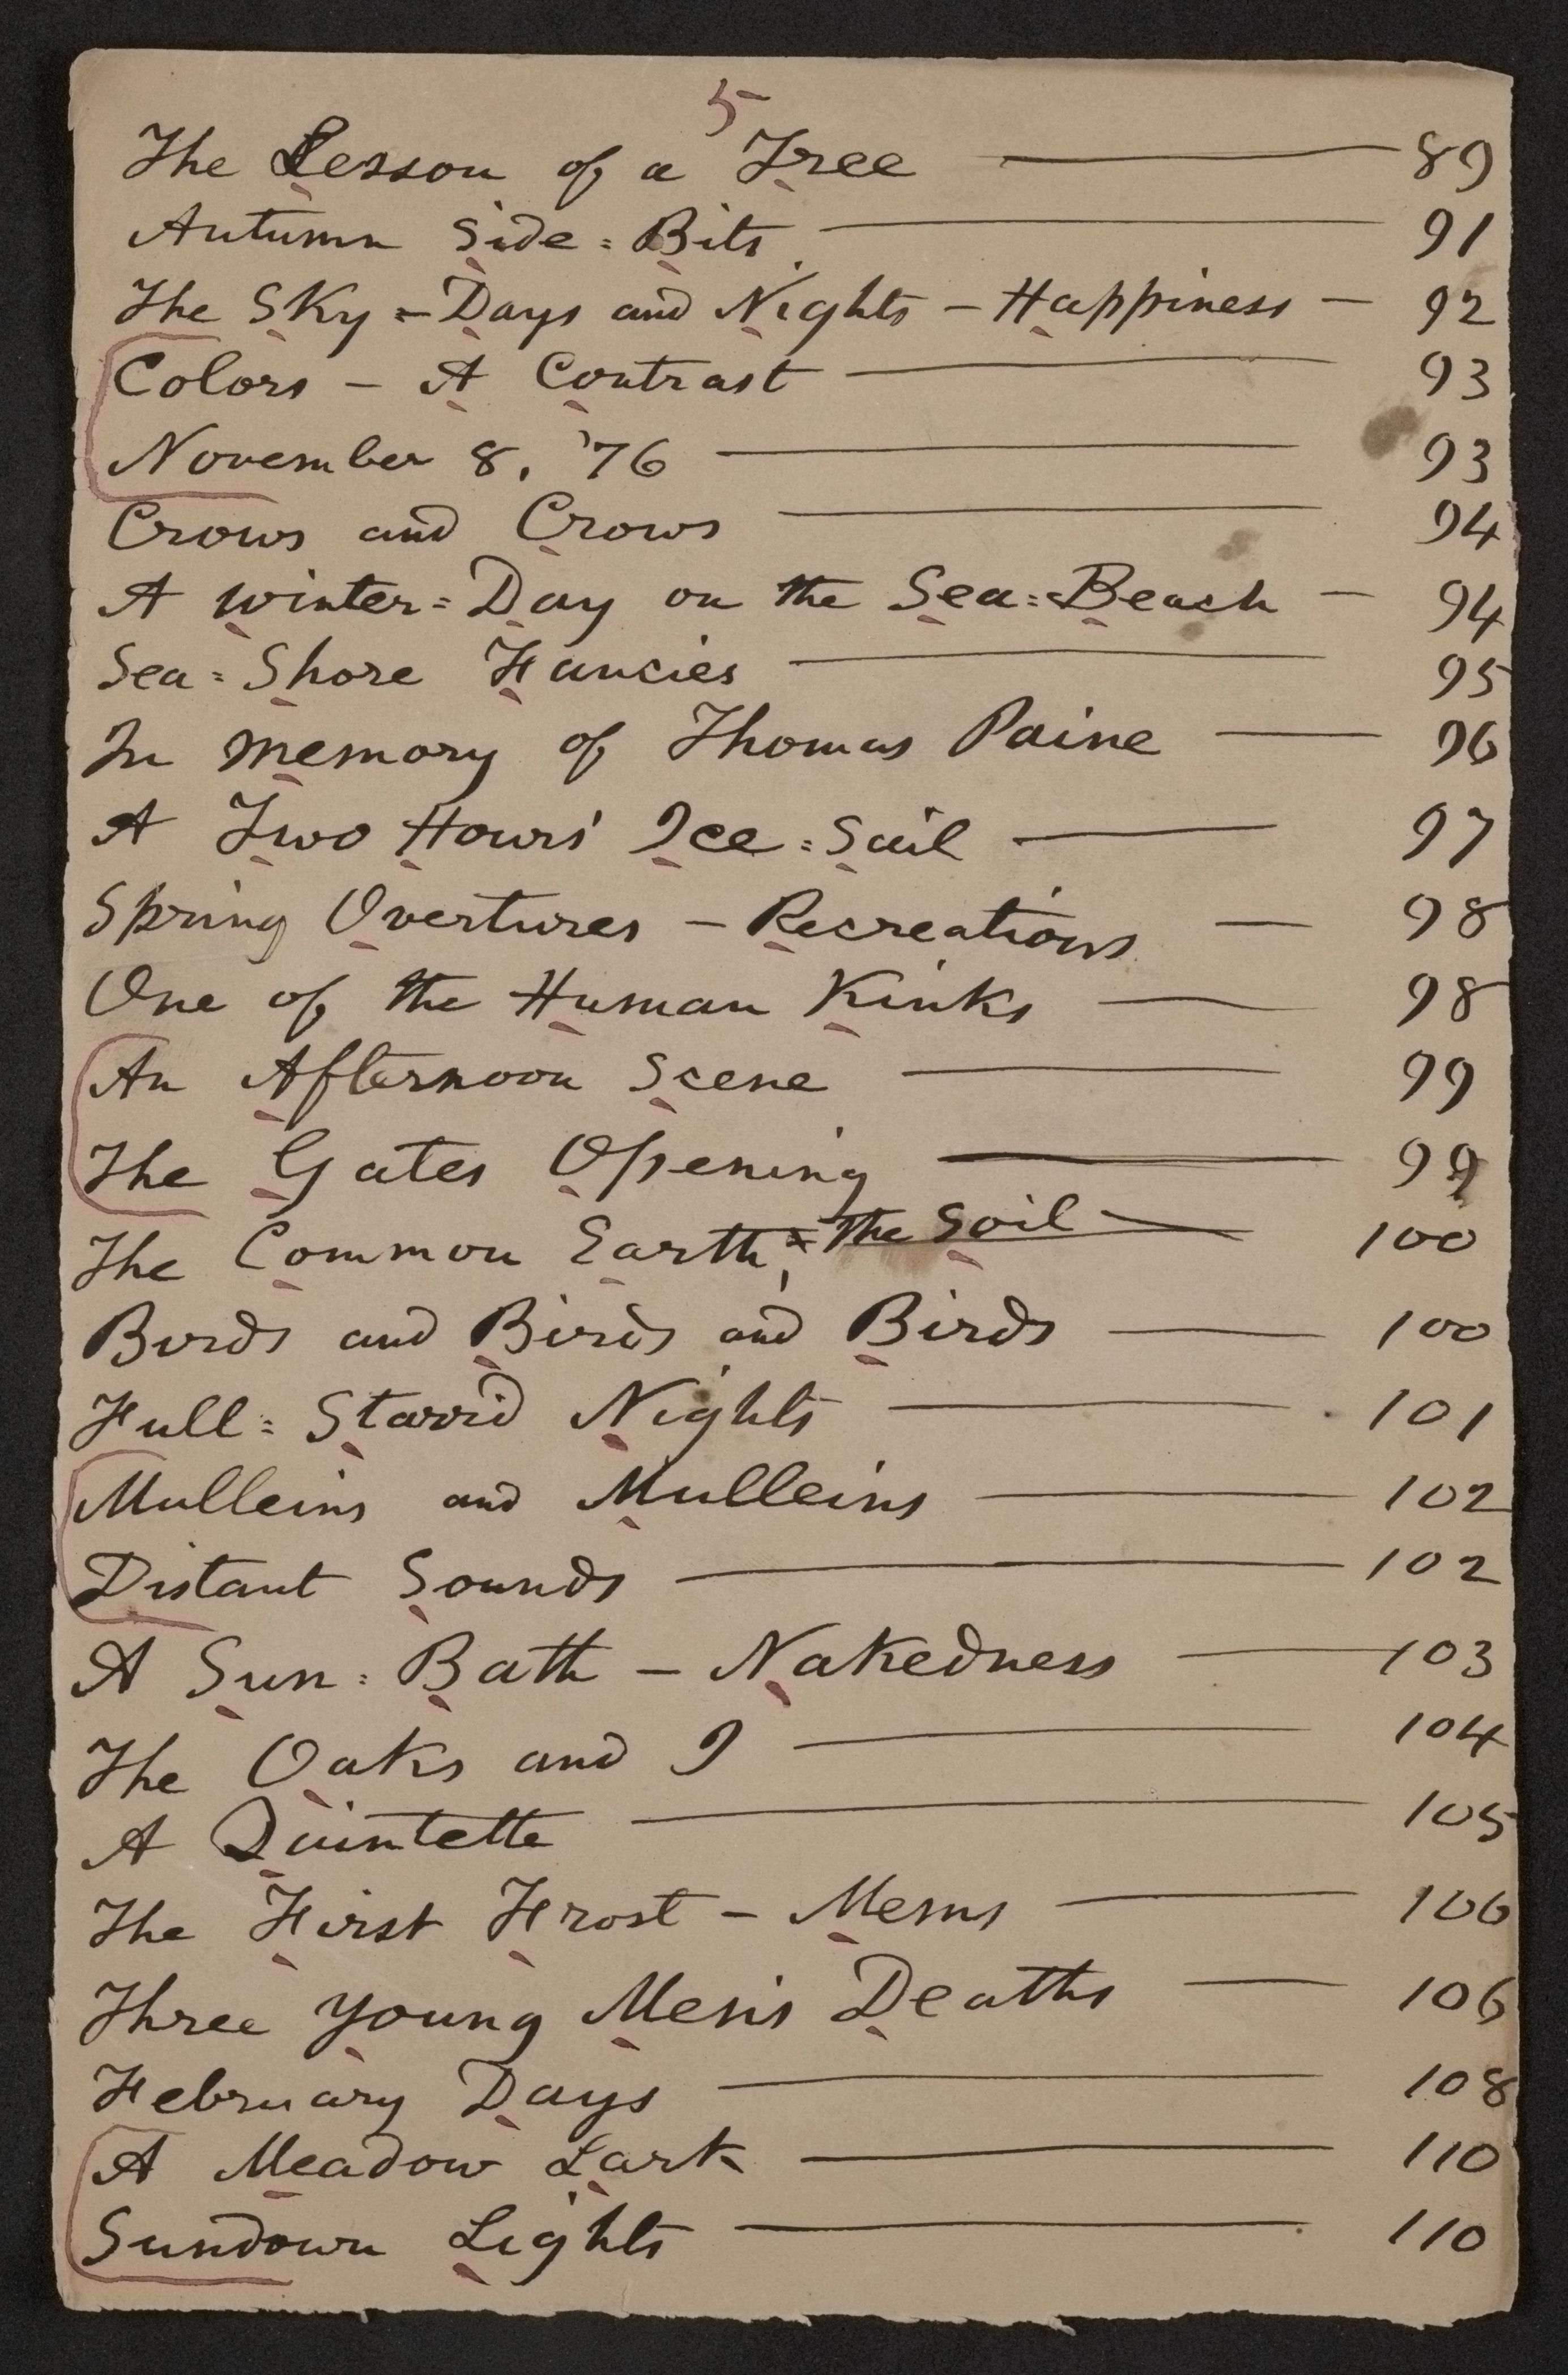 5
The Lesson of a Tree — 89
Autumn Side=Bits — 91
The Sky — Days and Nights — Happiness — 92
Colors — A Contrast — 93
November 8, '76 — 93
Crows and Crows — 94
A Winter=Day on the Sea=Beach — 94
Sea=Shore Fancies — 95
In Memory of Thomas Paine — 96
A Two Hours' Ice=Sail — 97
Spring Overtures — Recreations — 98
One of the Human Kinks — 98
An Afternoon Scene — 99
The Gates Opening — 99
The Common Earth, the Soil — 100
Birds and Birds and Birds — 100
Full=Starr'd Nights — 101
Mulleins and Mulleins — 102
Distant Sounds — 102
A Sun=Bath — Nakedness — 103
The Oaks and I — 104
A Quintette — 105
The First Frost — Mems — 106
Three Young Men's Deaths — 106
February Days — 108
A Meadow Lark — 110
Sundown Lights — 110